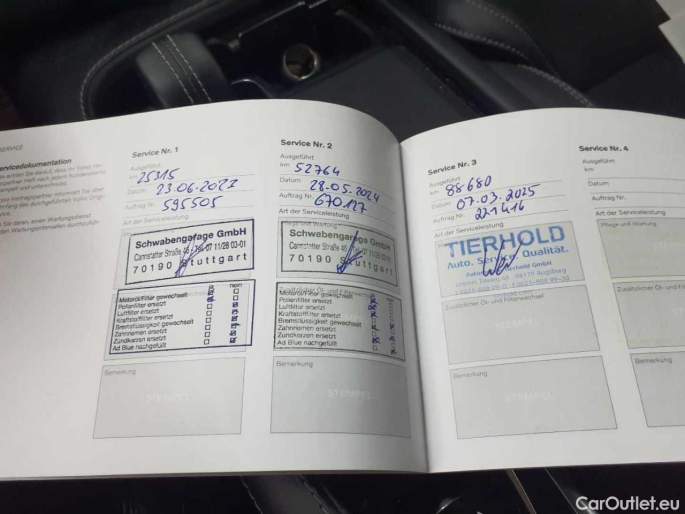 SERVICE
Servicedokumentation
Service Nr. 1
Ausgeführt
km 25315
Datum 23.06.2021
Auftrag Nr. 595505
Art der Serviceleistung
Schwabengarage GmbH
Cannstatter Straße 46 · Tel. 07 11/28 03-01
70190 Stuttgart
nein
Motoröl/Filter gewechselt
Pollenfilter ersetzt
Luftfilter ersetzt
Kraftstofffilter ersetzt
Bremsflüssigkeit gewechselt
Zahnriemen ersetzt
Zündkerzen ersetzt
Ad Blue nachgefüllt
Bemerkung
STEMPEL
Service Nr. 2
Ausgeführt
km 52764
Datum 28.05.2024
Auftrag Nr. 670127
Art der Serviceleistung
Schwabengarage GmbH
Cannstatter Straße
70190 Stuttgart
Zusätzlicher Öl- und Filterwechsel
Motoröl/Filter gewechselt
Pollenfilter ersetzt
Luftfilter ersetzt
Kraftstofffilter ersetzt
Bremsflüssigkeit gewechselt
Zahnriemen ersetzt
Zündkerzen ersetzt
Ad Blue nachgefüllt
Bemerkung
STEMPEL
Service Nr. 3
Ausgeführt
km 88680
Datum 07.03.2025
Auftrag Nr. 221416
Art der Serviceleistung
TIERHOLD
Auto. Service. Qualität.
Tierhold GmbH
Augsburg
Zusätzlicher Öl- und Filterwechsel
Bemerkung
STEMPEL
Service Nr. 4
Ausgeführt
km
Datum
Auftrag Nr.
Art der Serviceleistung
Pflege und Wartung
Zusätzlicher Öl- und Filterwechsel
Bemerkung
CarOutlet.eu